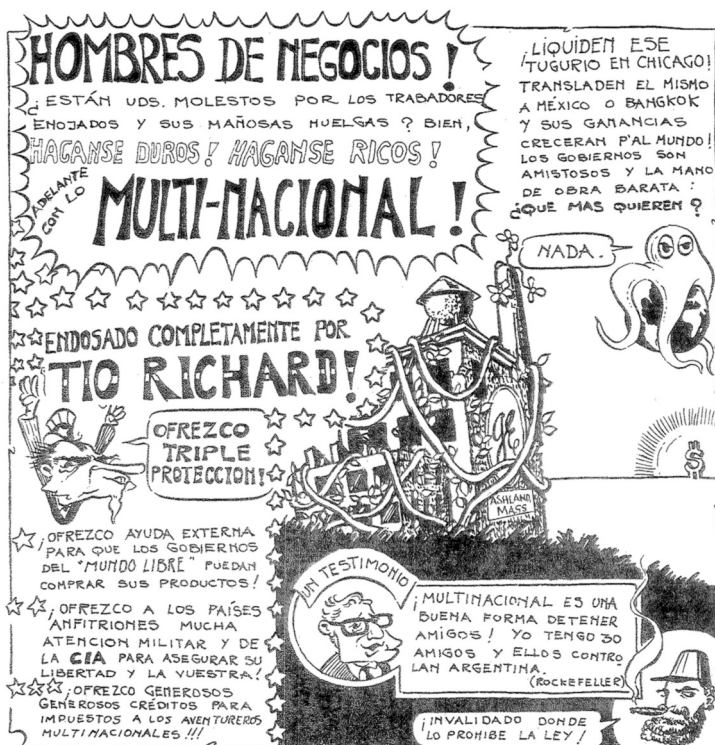 HOMBRES DE NEGOCIOS!
¿ESTÁN UDS. MOLESTOS POR LOS TRABADORES
ENOJADOS Y SUS MAÑOSAS HUELGAS? BIEN,
HAGANSE DUROS! HAGANSE RICOS!
ADELANTE
CON LO
MULTI-NACIONAL!
¡LIQUIDEN ESE
TUGURIO EN CHICAGO!
TRANSLADEN EL MISMO
A MÉXICO O BANGKOK
Y SUS GANANCIAS
CRECERAN P'AL MUNDO!
LOS GOBIERNOS SON
AMISTOSOS Y LA MANO
DE OBRA BARATA:
¿QUE MAS QUIEREN?
NADA.
ENDOSADO COMPLETAMENTE POR
TIO RICHARD!
OFREZCO
TRIPLE
PROTECCION!
¡OFREZCO AYUDA EXTERNA
PARA QUE LOS GOBIERNOS
DEL "MUNDO LIBRE" PUEDAN
COMPRAR SUS PRODUCTOS!
¡OFREZCO A LOS PAÍSES
ANFITRIONES MUCHA
ATENCION MILITAR Y DE
LA CIA PARA ASEGURAR SU
LIBERTAD Y LA VUESTRA!
¡OFREZCO GENEROSOS
GENEROSOS CRÉDITOS PARA
IMPUESTOS A LOS AVENTUREROS
MULTINACIONALES!!!
GE
ASHLAND
MASS
$
UN TESTIMONIO
¡MULTINACIONAL ES UNA
BUENA FORMA DETENER
AMIGOS! YO TENGO 30
AMIGOS Y ELLOS CONTRO
LAN ARGENTINA.
(ROCKEFELLER)
¡INVALIDADO DONDE
LO PROHIBE LA LEY!